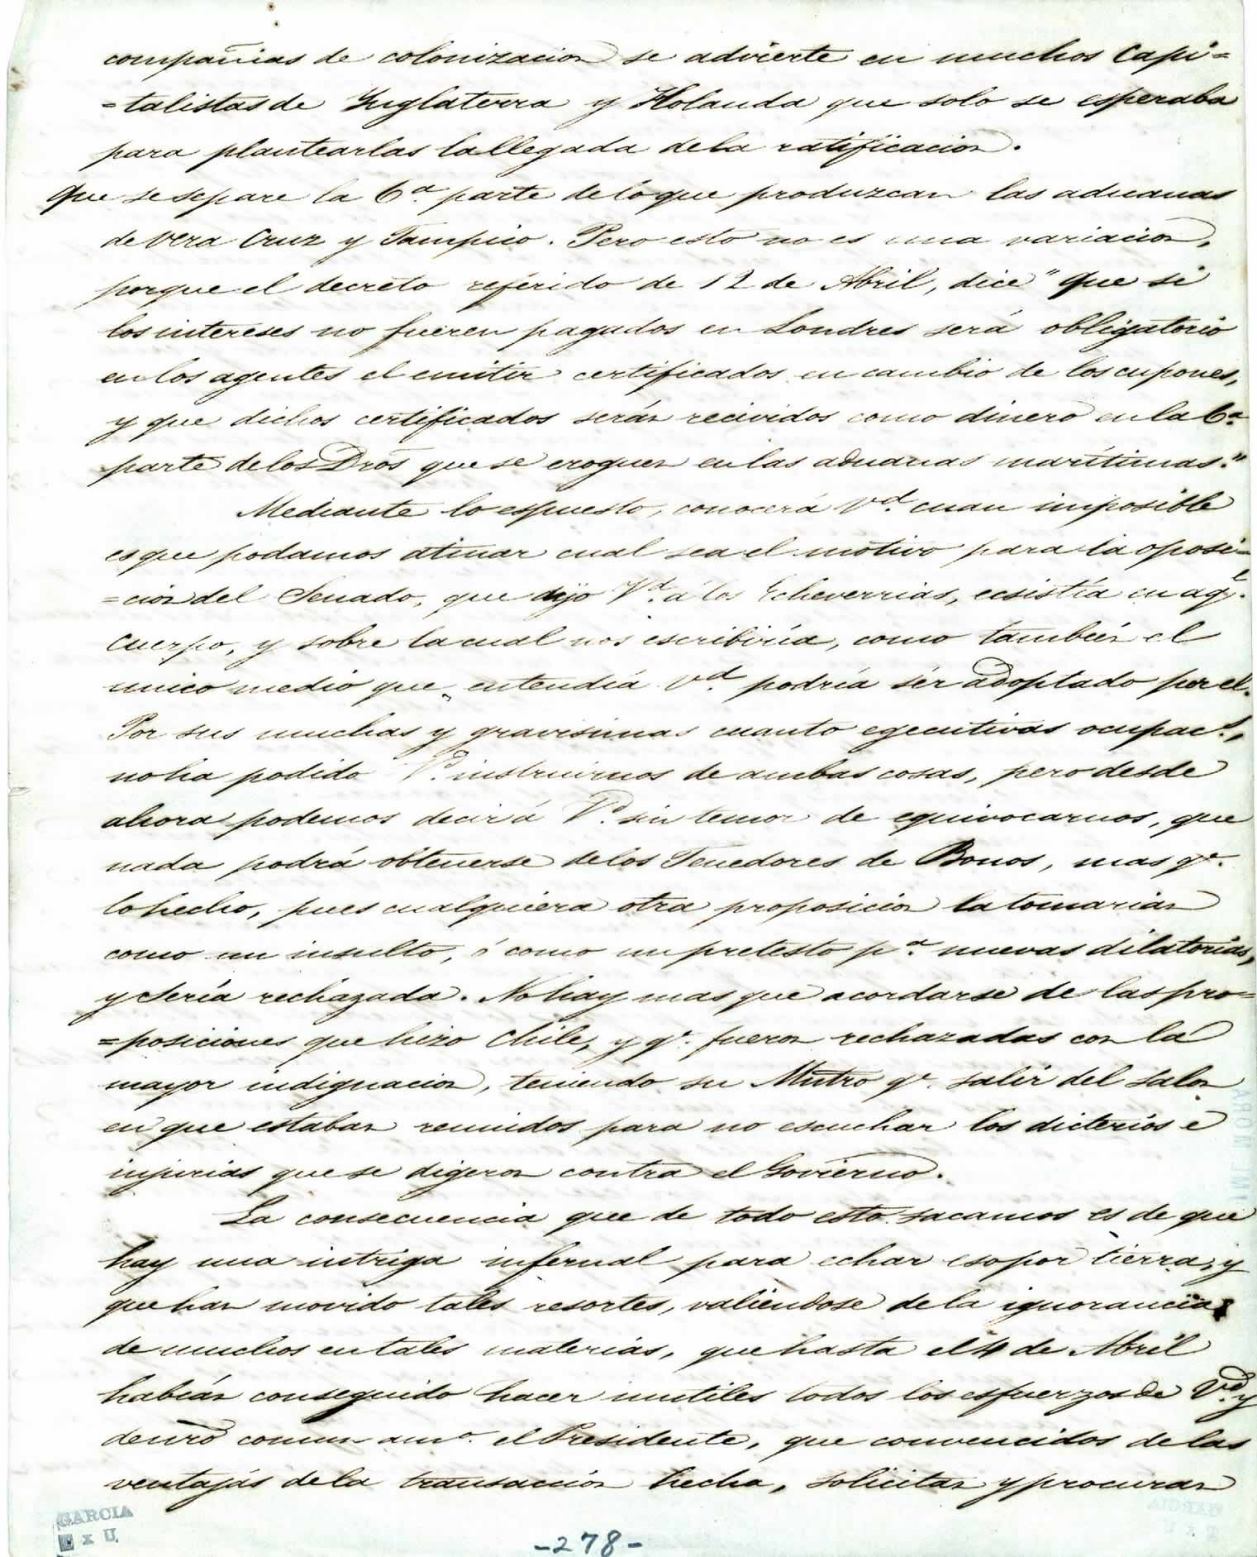 compañias de colonizacion se advierte en muchos Capi=
=talistas de Ynglaterra y Holanda que solo se esperaba
para plantearlas la llegada de la ratificacion.
Que se separe la 6.a parte de lo que produzcan las aduanas
de Vera Cruz y Tampico. Pero esto no es una variacion,
porque el decreto referido de 12 de Abril, dice "Que si
los intereses no fueren pagados en Londres será obligatorio
en los agentes el emitir certificados en cambio de los cupones,
y que dichos certificados serán recividos como dinero en la 6.a
parte de los Dros que se eroguen en las aduanas maritimas."
Mediante lo espuesto, conocerá Vd. cuan imposible
es que podamos atinar cual sea el motivo para la oposi=
=cion del Senado, que dijo Vd. á los Echeverrias, ecsistía en aql.
cuerpo, y sobre la cual nos escribiría, como tambien el
unico medio que entendiá Vd. podría sér adoptado por el.
Por sus muchas y gravisimas cuanto egecutivas ocupac.s,
no ha podido V. instruirnos de ambas cosas, pero desde
ahora podemos decir á V. sin temor de equivocarnos, que
nada podrá obtenerse de los Tenedores de Bonos, mas qe.
lo hecho, pues cualquiera otra proposicion la tomarian
como un insulto, ó como un pretesto p.a nuevas dilatorias,
y sería rechazada. No hay mas que acordarse de las pro=
=posiciones que hizo Chile, y qe. fueron rechazadas con la
mayor indignacion, teniendo su Mntro qe. salir del salon
en que estaban reunidos para no escuchar los dicterios e
injurias que se digeron contra el Govierno.
La consecuencia que de todo esto sacamos es de que
hay una intriga infernal para echar eso por tierra, y
que han movido tales resortes, valiendose de la ignorancia
de muchos en tales materias, que hasta el 4 de Abril
habián conseguido hacer inutiles todos los esfuerzos de Vd. y
de nro comun am.o el Presidente, que convencidos de las
ventajás de la transaccion hecha, solicitan y procuran
GARCIA
E x U.
-278-